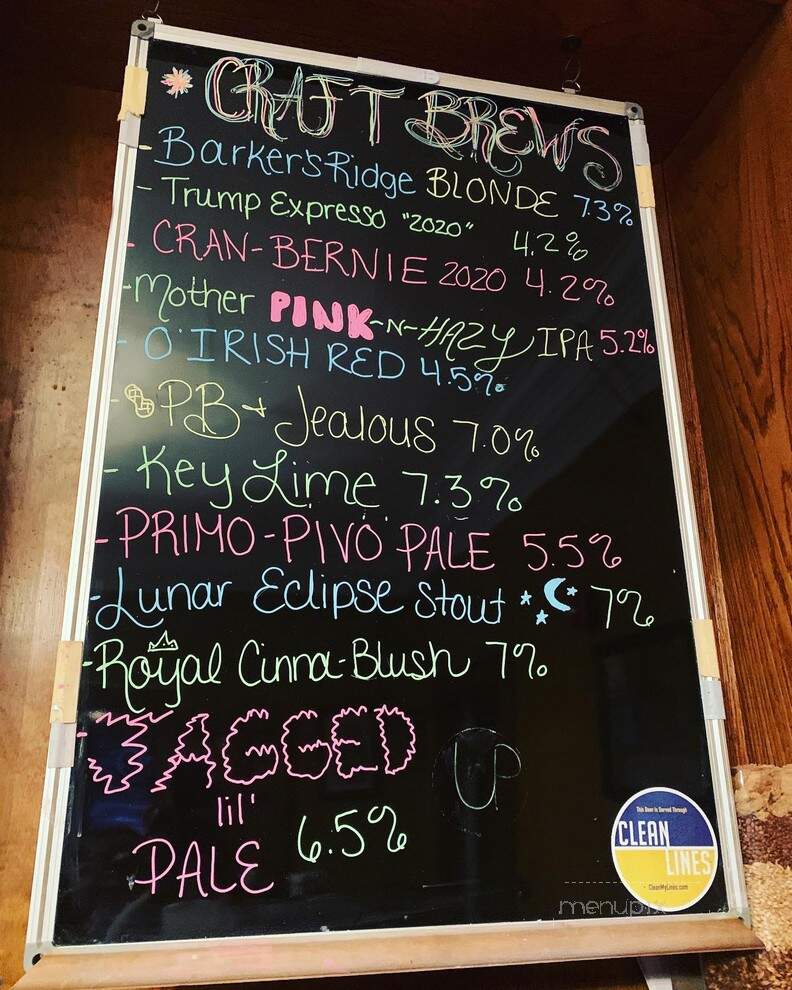 CRAFT BREWS
- Barker's Ridge BLONDE 7.3%
- Trump Expresso "2020" 4.2%
- CRAN-BERNIE 2020 4.2%
- Mother PINK-N-HAZY IPA 5.2%
- O'IRISH RED 4.5%
- PB + Jealous 7.0%
- Key Lime 7.3%
- PRIMO-PIVO PALE 5.5%
- Lunar Eclipse Stout 7%
- Royal Cinna-Blush 7%
- JAGGED
UP
lil'
PALE 6.5%
This Beer is Served Through
CLEAN
LINES
CleanMyLines.com
menupix